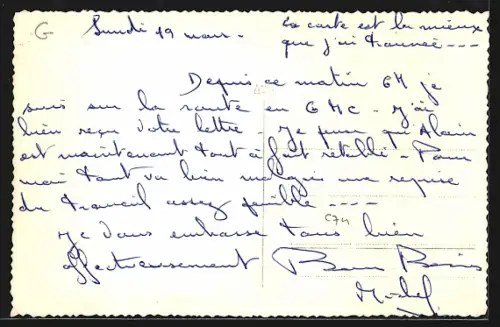 G Lundi 19 mars. La carte est la mieux
que j'ai trouvée ----
Depuis ce matin 6H je
suis sur la route en GMC. J'ai
bien reçu votre lettre. Je pense qu'Alain
est maintenant tout à fait rétabli. Pour
moi tout va bien malgré une reprise
du travail assez pénible ----
C74
Je vous embrasse tous bien
affectueusement Bons Baisers
Michel